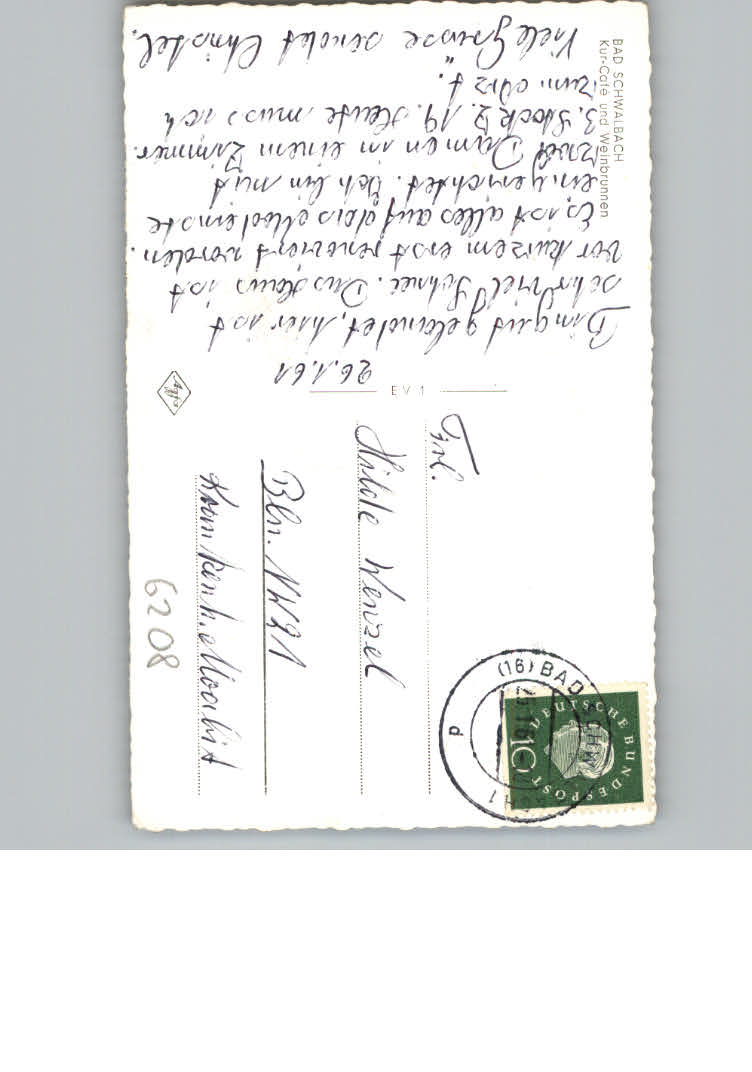 26.1.61
Bin gut gelandet, hier ist
sehr viel Schnee. Das Haus ist
vor kurzem erst renoviert worden.
Es ist alles auf das Modernste
eingerichtet. Ich bin mit
zwei Damen in einem Zimmer.
3. Stock Z. 19. Heute muss ich
zum Arzt.
Viele Grüsse sendet Christel.
BAD SCHWALBACH
Kur-Café und Weinbrunnen
EV 1
Agfa
Frl.
Hilde Wenzel
Bln. NW 21
Krankenh. Moabit
6208
(16) BAD SCHWALBACH 1
p
DEUTSCHE BUNDESPOST
10